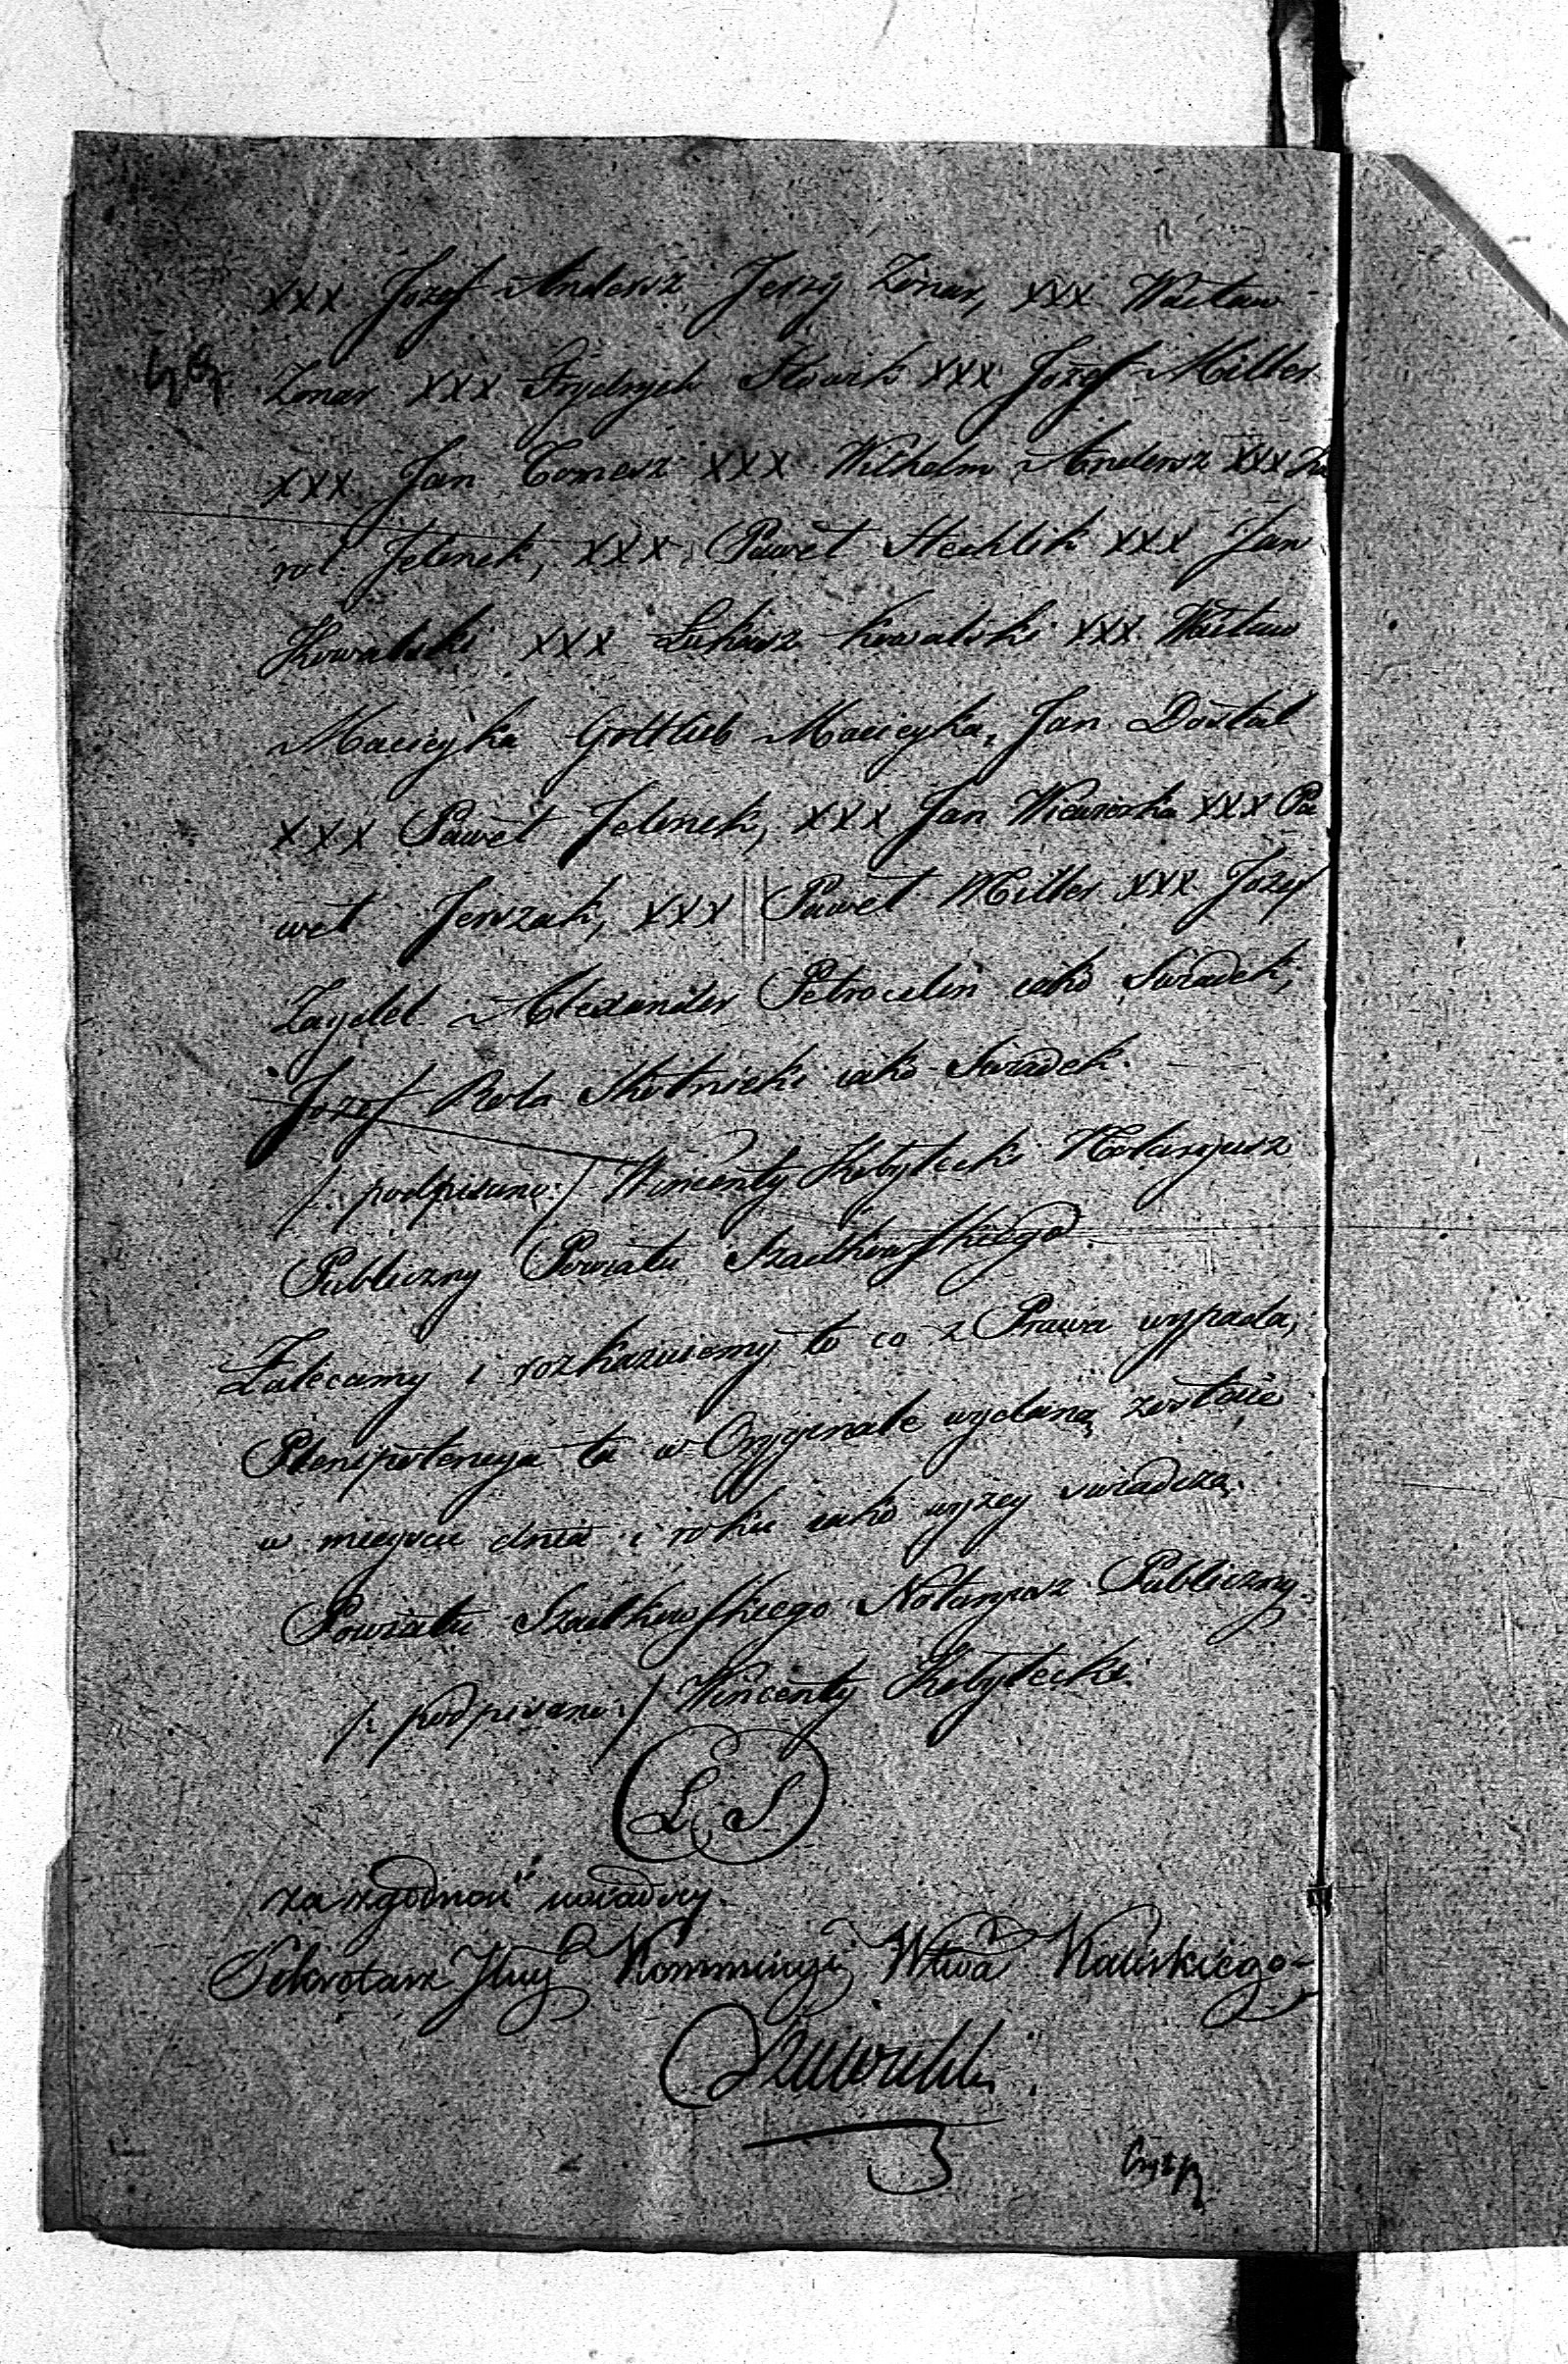 xxx Jozef Andersz Jerzy Zinar, xxx Wacław
Zinar xxx Frydrych Stark xxx Jozef Miller
xxx Jan Tomesz xxx Wilhelm Andersz xxx Ka
rol Jelinek, xxx Paweł Stechlik xxx Jan
Kowalski xxx Łukasz Kowalski xxx Wacław
Macieyka Gottlieb Macieyka, Jan Dostal
xxx Paweł Jelinek, xxx Jan Wieworka xxx Pa
weł Jerszak, xxx Paweł Miller xxx Jozef
Zaydel Alexander Petrocelin iako Swiadek,
Jozef Rola Skotnicki iako Swiadek.
/: podpisano:/ Wincenty Kobyłecki Notaryusz
Publiczny Powiatu Szadkowskiego
Zalecamy i rozkazuiemy to co z Prawa wypada,
Plenipotencya ta w Oryginale wydaną zostaie
w mieyscu dnia i roku iako wyżey swiadczą.
Powiatu Szadkowskiego Notaryusz Publiczny.
/: podpisano:/ Wincenty Kobyłecki
L S
za zgodność uwiadczy
Sekretarz Kommissyi Wtwa Kaliskiego